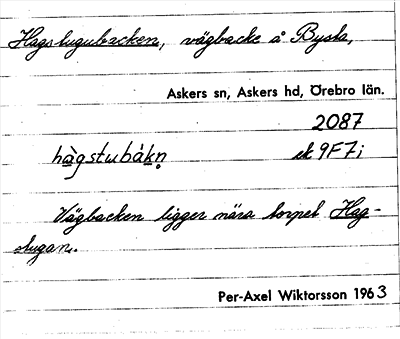 Hagstugubacken, vägbacke å Bysta,
Askers sn, Askers hd, Örebro län.
2087
hàgstubákn̥ ek 9F7;
Vägbacken ligger nära torpet Hag-
stugan.
Per-Axel Wiktorsson 1963